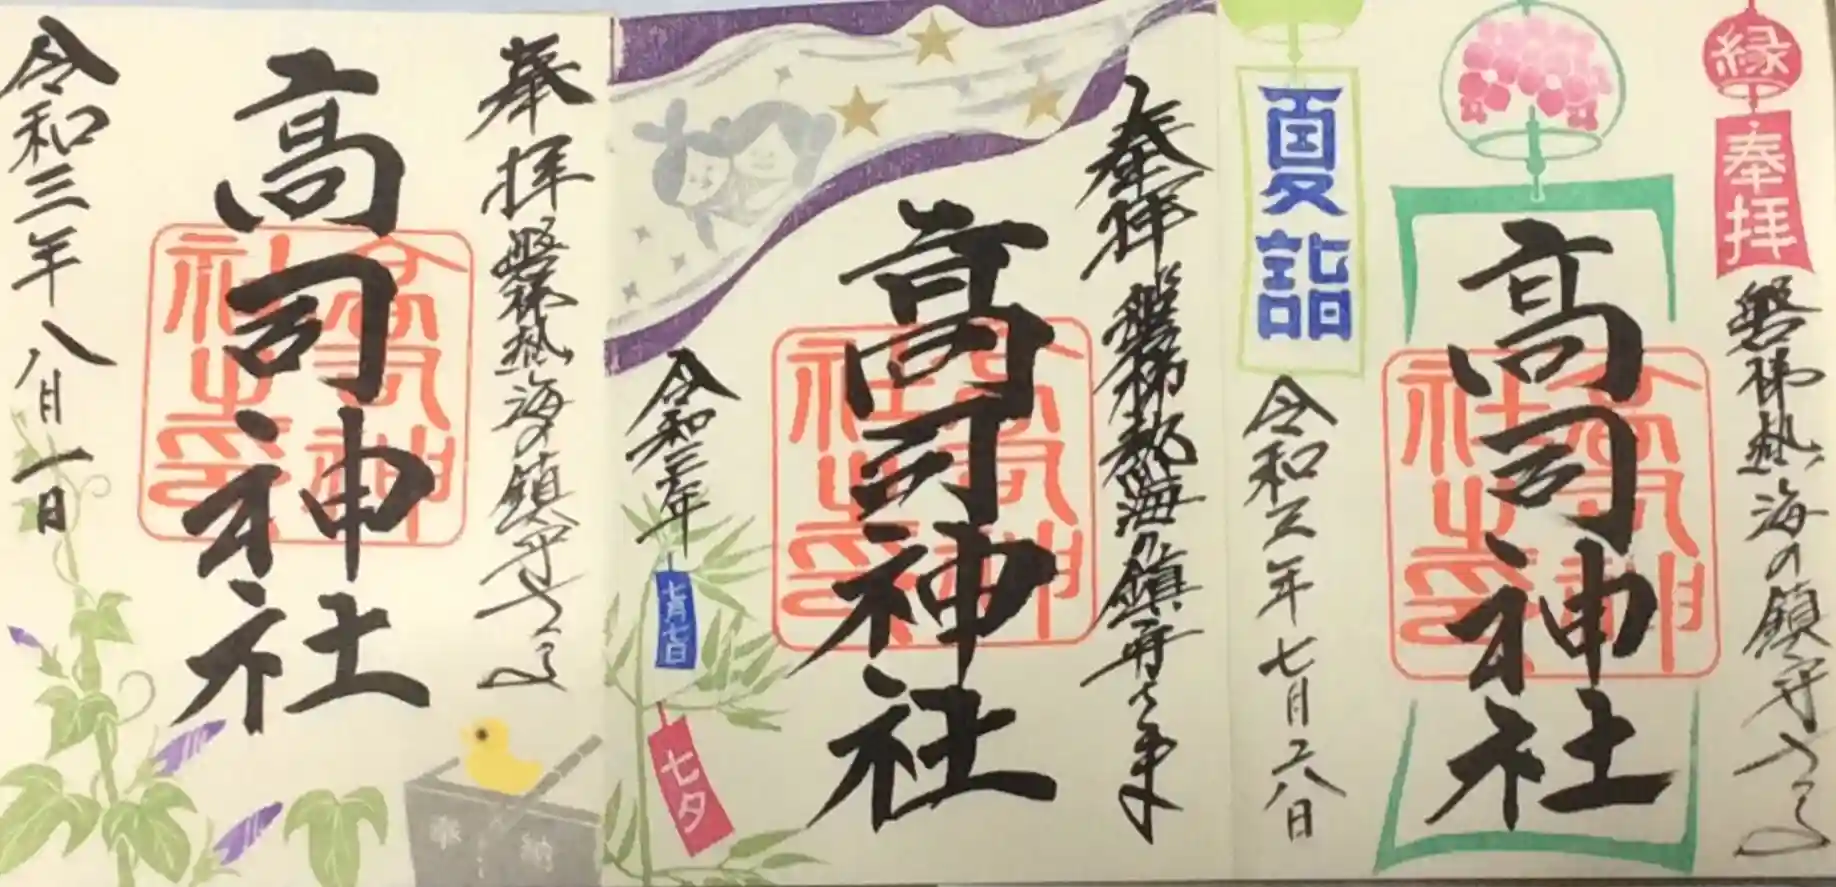 奉拝
磐梯熱海の鎮守さま
高司神社
高司神社之印
令和三年八月一日
奉納
奉拝
磐梯熱海の鎮守さま
高司神社
高司神社之印
令和三年
七月七日
七夕
縁
奉拝
磐梯熱海の鎮守さま
高司神社
高司神社之印
夏詣
令和三年七月二八日